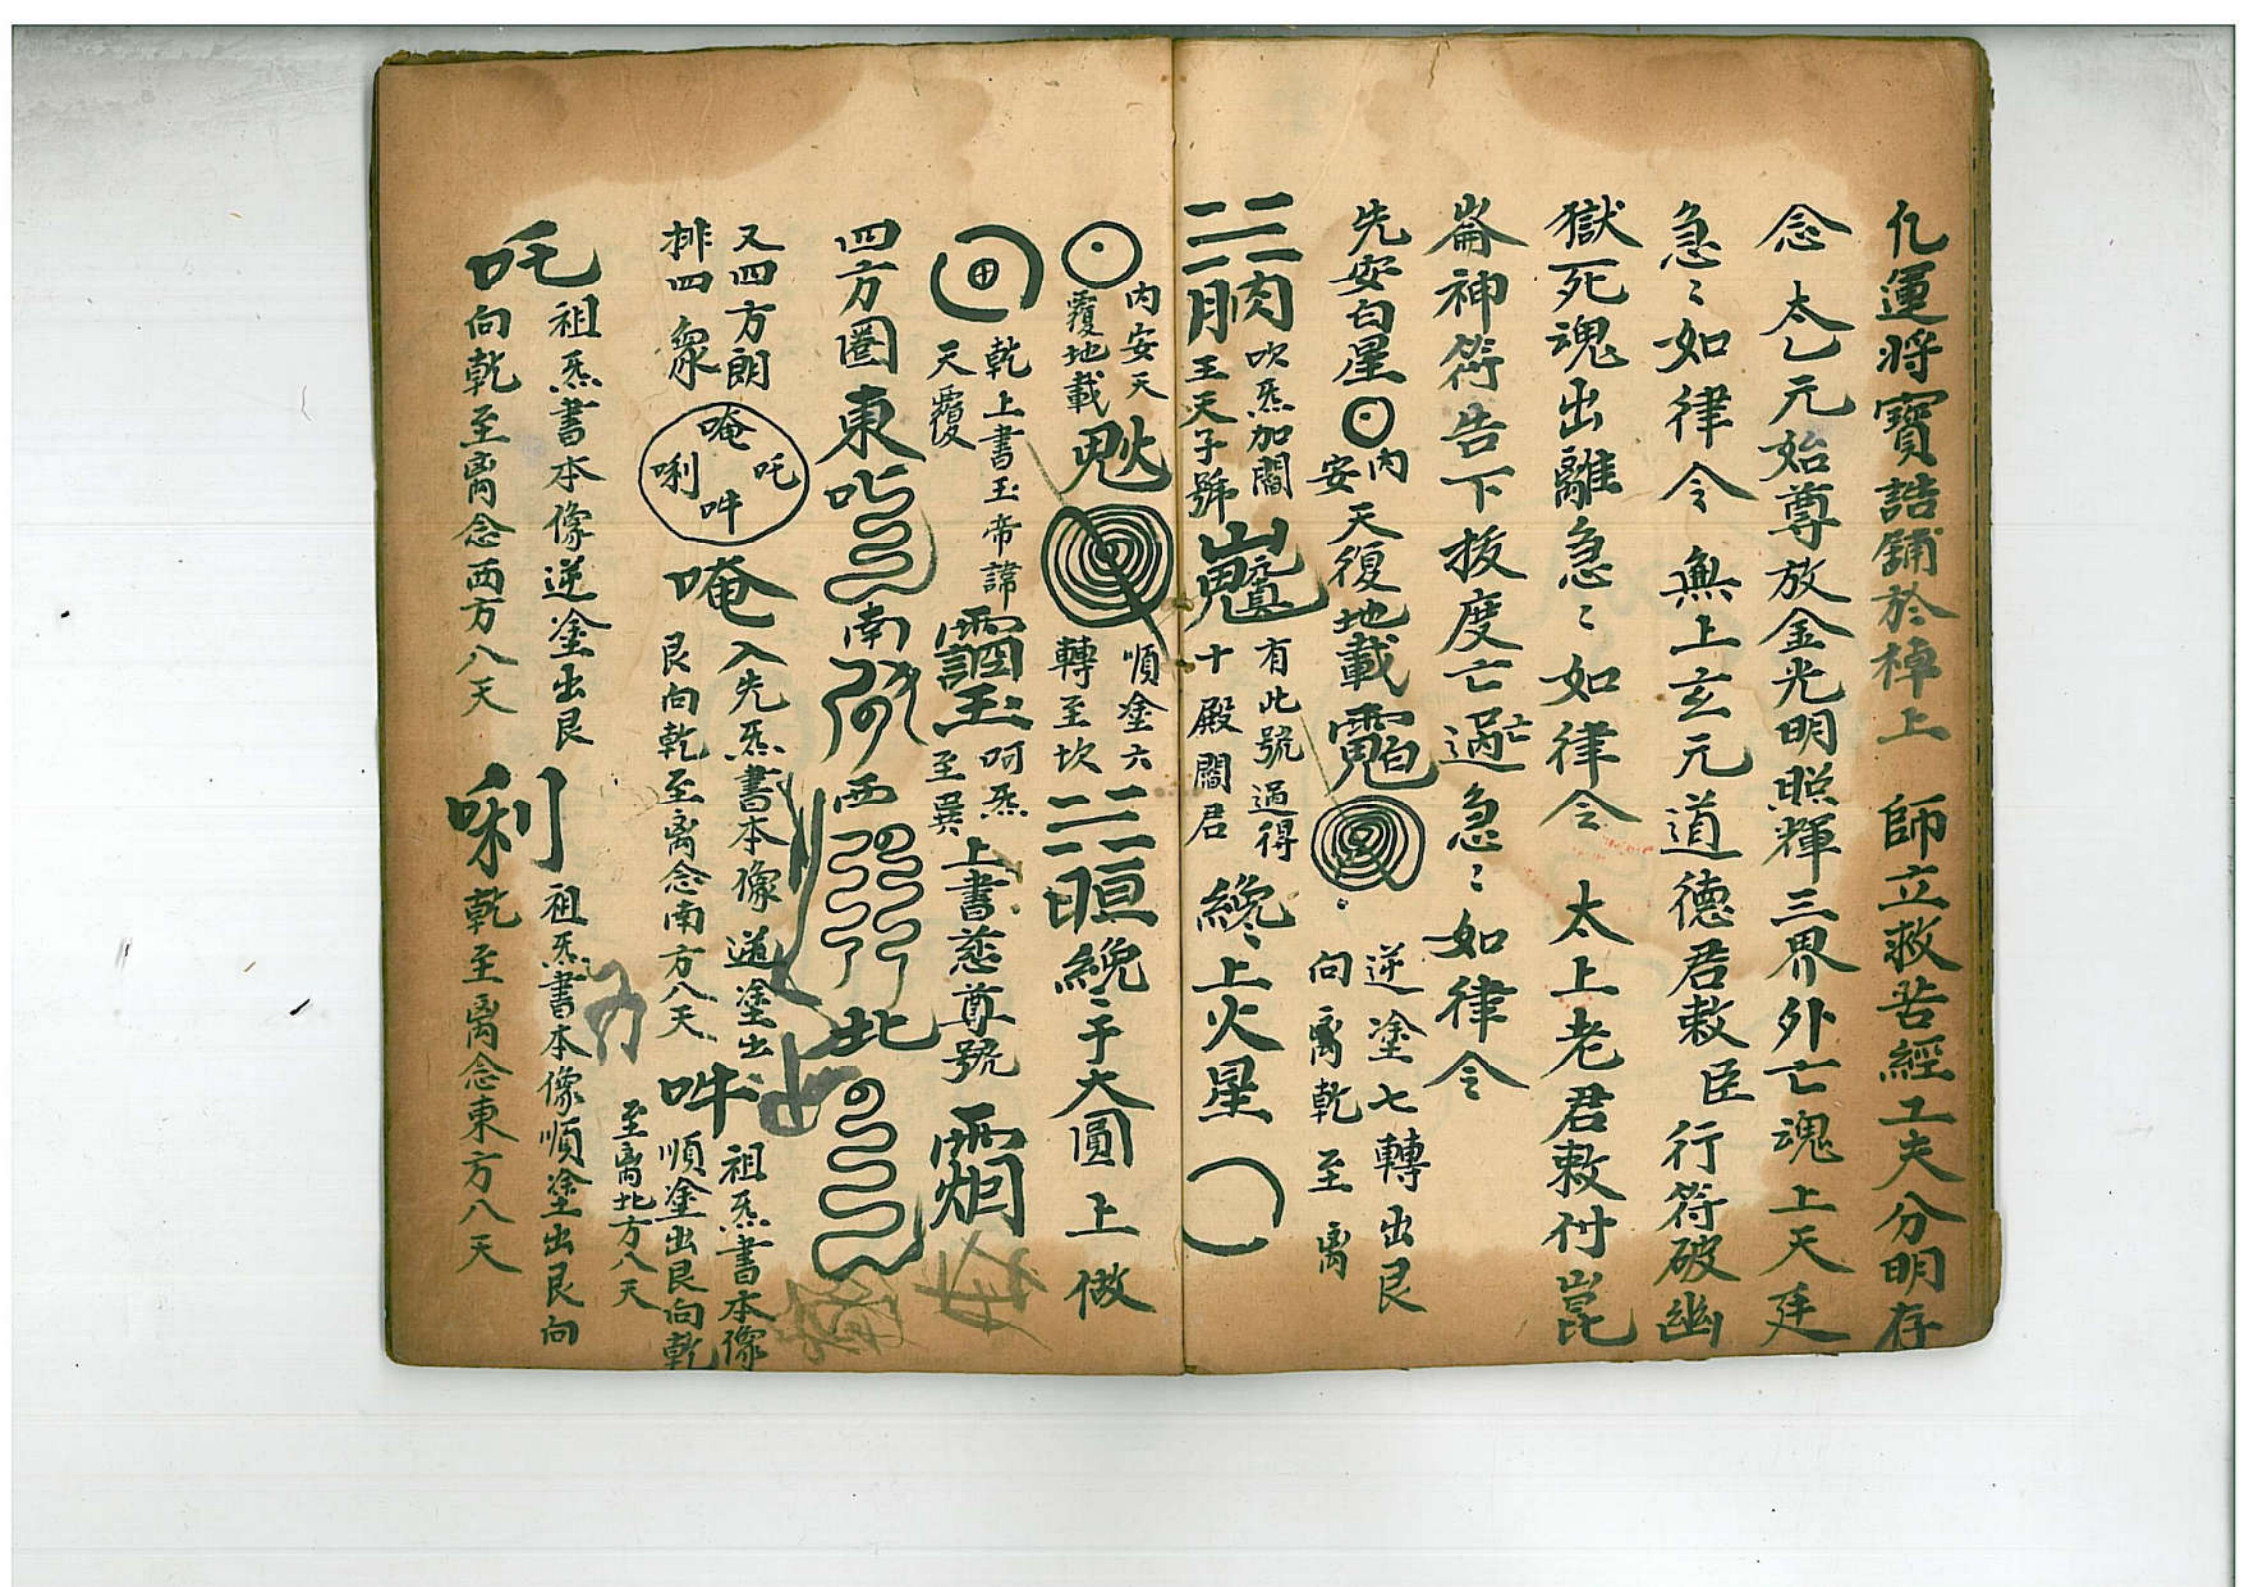 運將寳誥鋪於棹上 師立救苦經工夫分明存
念太乙元始尊放金光明照輝三界外亡魂上天廷
急〻如律令 無上玄元道德君敕臣行符破幽
獄死魂出離急〻如律令 太上老君敕付崑
崙神符告下拔度亡過亡急〻如律令
先安白星 內安 天復地載 逆塗七轉出艮向离乾至离
吹炁加閻王天子號 有此號過得十殿閻君 上火星
內安天覆地載 順塗六轉至坎 于大圓上做
乾上書玉帝諱天覆 呵炁至巽 上書慈尊號
四方圈東 南 西 北
又四方朗排四
唵
吽
唎
吒
唵 入先炁書本像逆塗出艮向乾至离念南方八天 吽 祖炁書本像順塗出艮向乾至离北方八天
吒 祖炁書本像逆塗出艮向乾至离念西方八天 唎 祖炁書本像順塗出艮向乾至离念東方八天